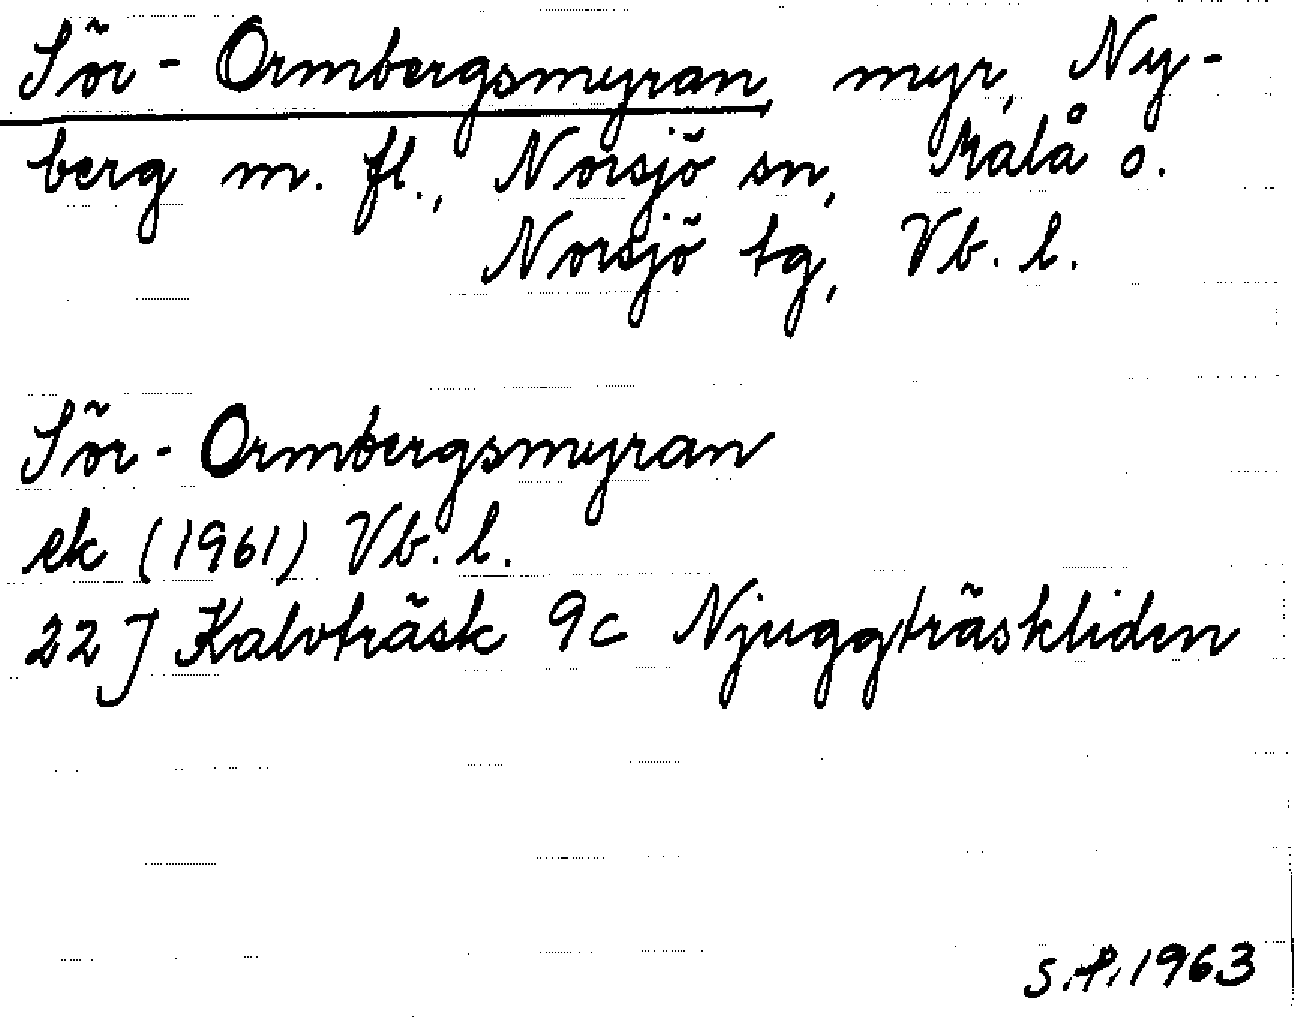 Sör-Ormbergsmyran, myr, Ny-
berg m. fl., Norsjö sn, Malå o.
Norsjö tg, Vb. l.
Sör-Ormbergsmyran
ek (1961) Vb. l.
22 J Kalvträsk 9c Njuggträskliden
S.P. 1963